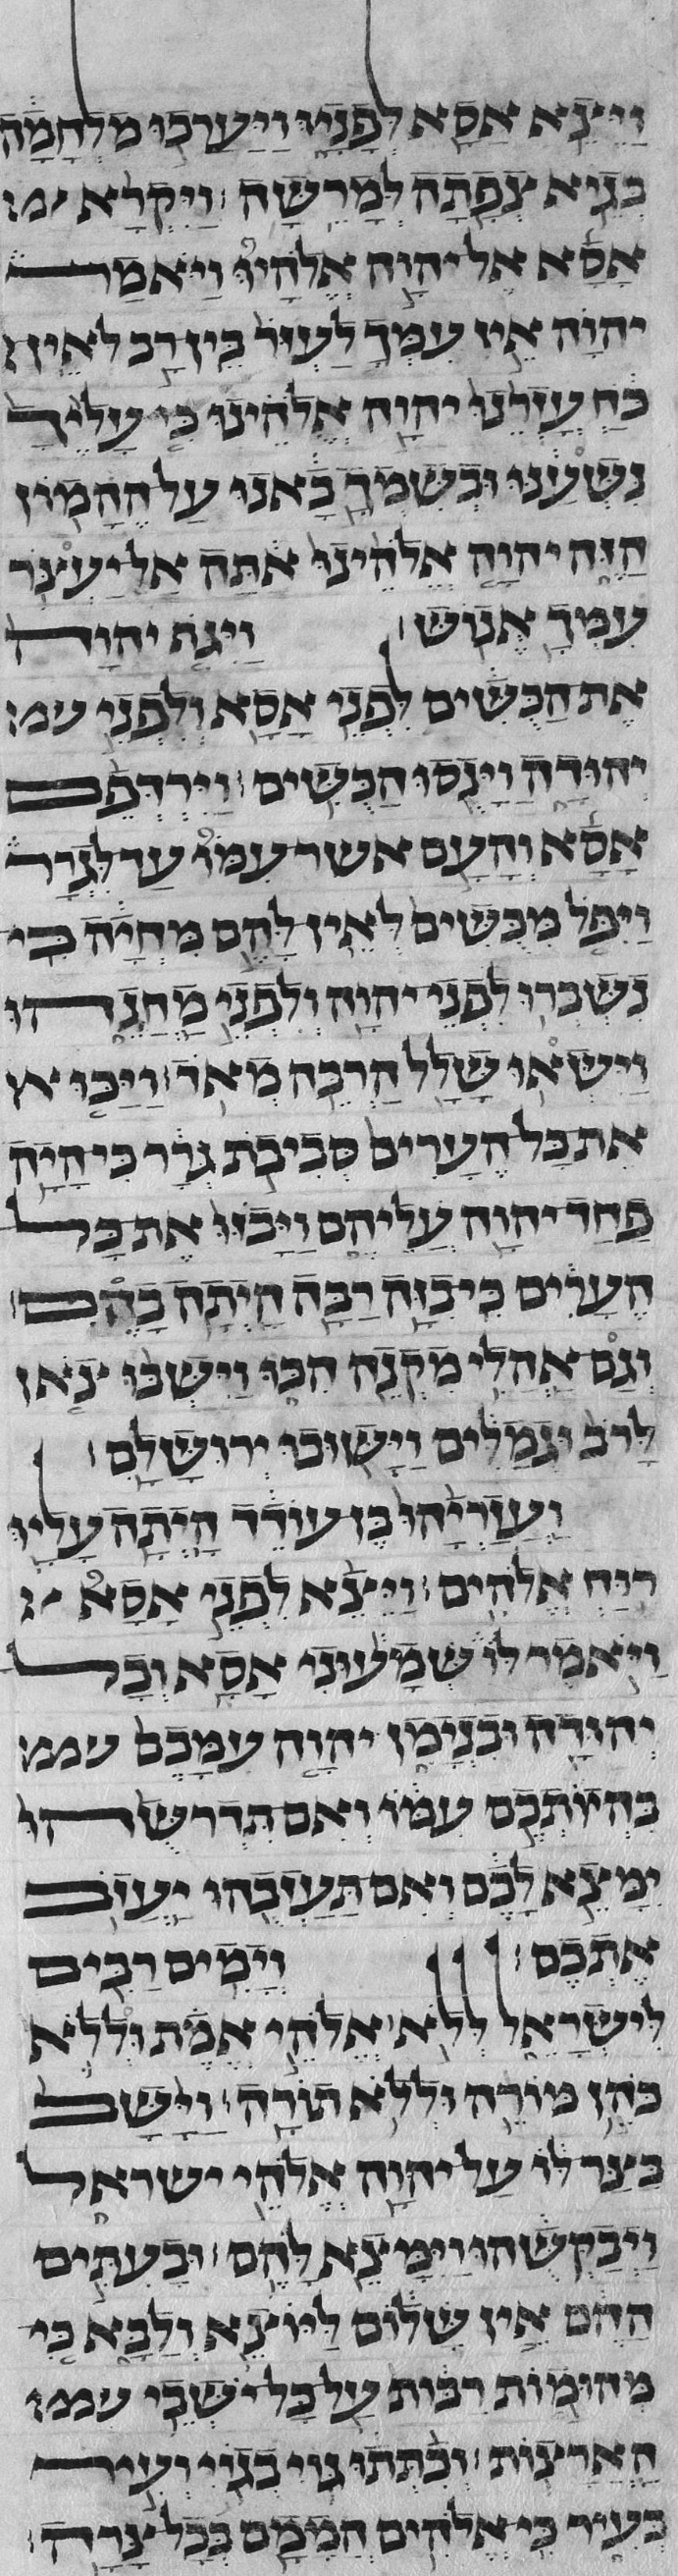 ויצא אסא לפניו ויערכו מלחמה
בגיא צפתה למרשה׃ ויקרא
אסא אל יהוה אלהיו ויאמר
יהוה אין עמך לעזור בין רב לאין
כח עזרנו יהוה אלהינו כי עליך
נשענו ובשמך באנו על ההמון
הזה יהוה אלהינו אתה אל יעצר
עמך אנוש׃ ויגף יהוה
את הכשים לפני אסא ולפני
יהודה וינסו הכשים׃ וירדפם
אסא והעם אשר עמו עד לגרר
ויפל מכשים לאין להם מחיה כי
נשברו לפני יהוה ולפני מחנהו
וישאו שלל הרבה מאד׃ ויכו
את כל הערים סביבת גרר כי היה
פחד יהוה עליהם ויבזו את כל
הערים כי בזה רבה היתה בהם׃
וגם אהלי מקנה הכו וישבו צאן
לרב וגמלים וישובו ירושלם׃
ועזריהו בן עודד היתה עליו
רוח אלהים׃ ויצא לפני אסא
ויאמר לו שמעוני אסא וכל
יהודה ובנימן יהוה עמכם
בהיותכם עמו ואם תדרשהו
ימצא לכם ואם תעזבהו יעזב
אתכם׃ וימים רבים
לישראל ללא אלהי אמת וללא
כהן מורה וללא תורה׃ וישב
בצר לו על יהוה אלהי ישראל
ויבקשהו וימצא להם׃ ובעתים
ההם אין שלום ליוצא ולבא כי
מהומות רבות על כל ישבי
הארצות׃ וכתתו גוי בגוי ועיר
בעיר כי אלהים הממם בכל צרה׃